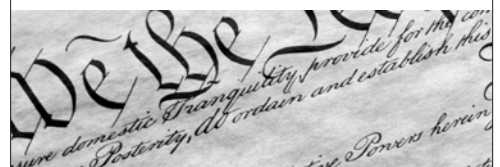 We the Peo
sure domestic Tranquility, provide for the com
Posterity, do ordain and establish this
Powers herein